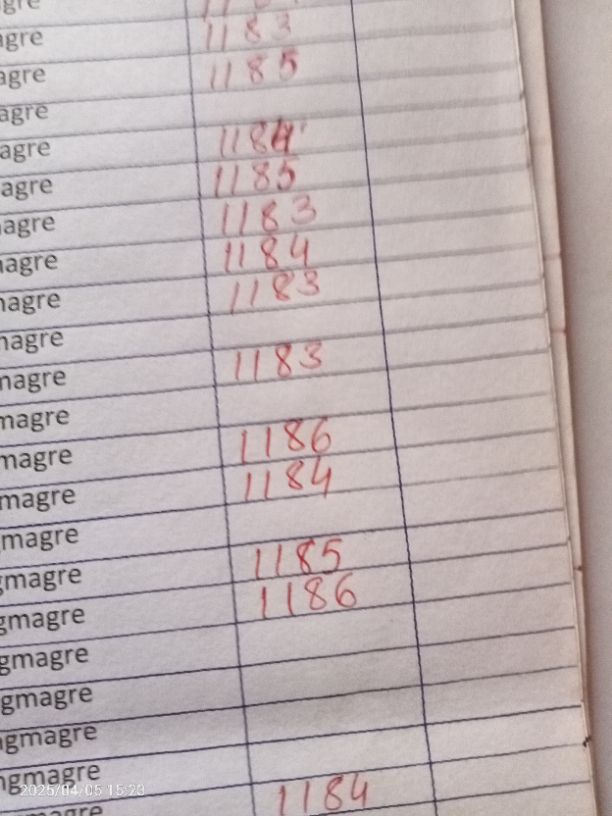 agre 1183
agre 1185
agre
agre 1184
agre 1185
agre 1183
agre 1184
magre 1183
magre
magre 1183
magre
magre 1186
magre 1184
gmagre
gmagre 1185
gmagre 1186
gmagre
gmagre
ngmagre
ngmagre
2025/04/05 15:20
1184